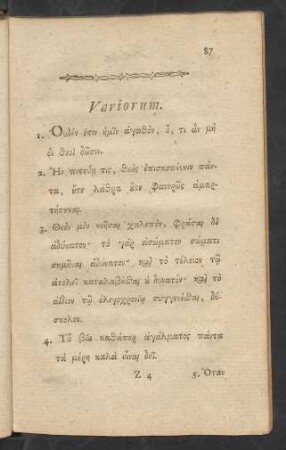 87
Variorum.
1. Οὐδέν ἐστιν ἡμῖν ἀγαθὸν, ὅ, τι ἂν μὴ
οἱ θεοὶ δῶσιν.
2. Ἢν πιστεύῃ τις, θεὸς ἐπισκοπεῖν πάν-
τα, ὔτε λάθρα ὔτε φανερῶς ἁμαρ-
τήσεται.
3. Θεὸν μὲν νοῆσαι χαλεπὸν, φράσαι δὲ
ἀδύνατον· τὸ γὰρ ἀσώματον σώματι
σημῆναι ἀδύνατον· καὶ τὸ τέλειον τῷ
ἀτελεῖ καταλαβέσθαι ὐ δυνατόν· καὶ τὸ
ἀΐδιον τῷ ὀλιγοχρονίῳ συγγενέσθαι, δύσ-
κολον.
4. Τȣ͂ βίȣ καθάπερ ἀγάλματος πάντα
τὰ μέρη καλὰ εἶναι δεῖ.
Z 4 5. Ὅταν